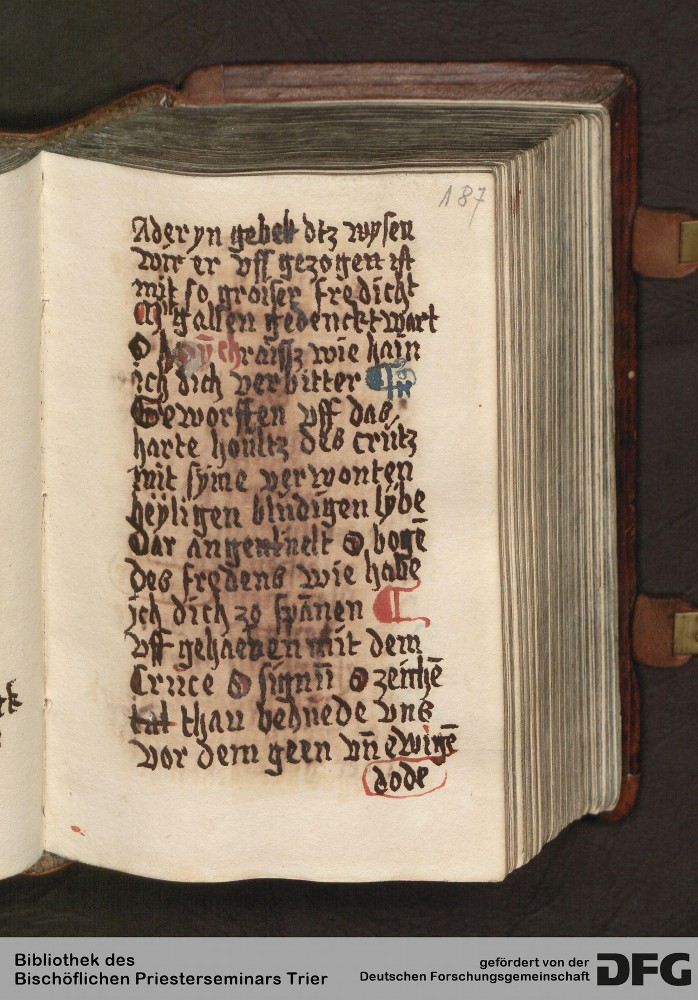 187
Aderyn gebett dtz wysen
wir er vff gezogen ist
mit so groiser fredicht
M gallen gedenckt wart
O hraissz wie hain
ich dich verbitter
Geworffen vff das
harte houltz des crutz
mit syme verwonten
heyligen bludigen lybe
Dar an genelt O bogē
des fredens wie habe
ich dich zo spānen
vff gehaeben mit dem
Cruce O signū O zeichē
tat thau behuede vns
vor dem geen vn̄ ewigē
dode
Bibliothek des
Bischöflichen Priesterseminars Trier
gefördert von der
Deutschen Forschungsgemeinschaft
DFG